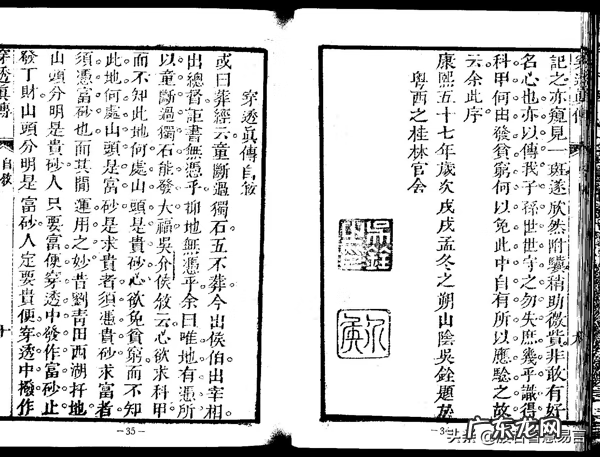 記之亦窺見一斑遂欣然附驥稍助微貲非敢有好
名心也亦以傳我子孫世世守之勿失庶幾乎識得
科甲何由發貧窮何以免此中自有所以應驗之故
云余此序
康熙五十七年歲次戊戌孟冬之朔山陰吳銓題於
粵西之桂林官舍
吳銓
-34-
穿透眞傳自敘
或曰葬經云童斷過獨石五不葬今出侯伯出宰相
出總督詎書無憑乎抑地無憑乎余曰唯地有憑所
以童斷過獨石能發大福吳介侯敘云心欲求科甲
而不知此地何處山頭是貴砂心欲免貧窮而不知
此地何處山頭是富砂是求貴者須憑貴砂求富者
須憑富砂也而其間運用之妙昔劉青田西湖扦地
山頭分明是貴砂人只要富便穿透中發作富砂止
發丁財山頭分明是富砂人定要貴便穿透中撥作
穿透眞傳
自敘
十
-35-